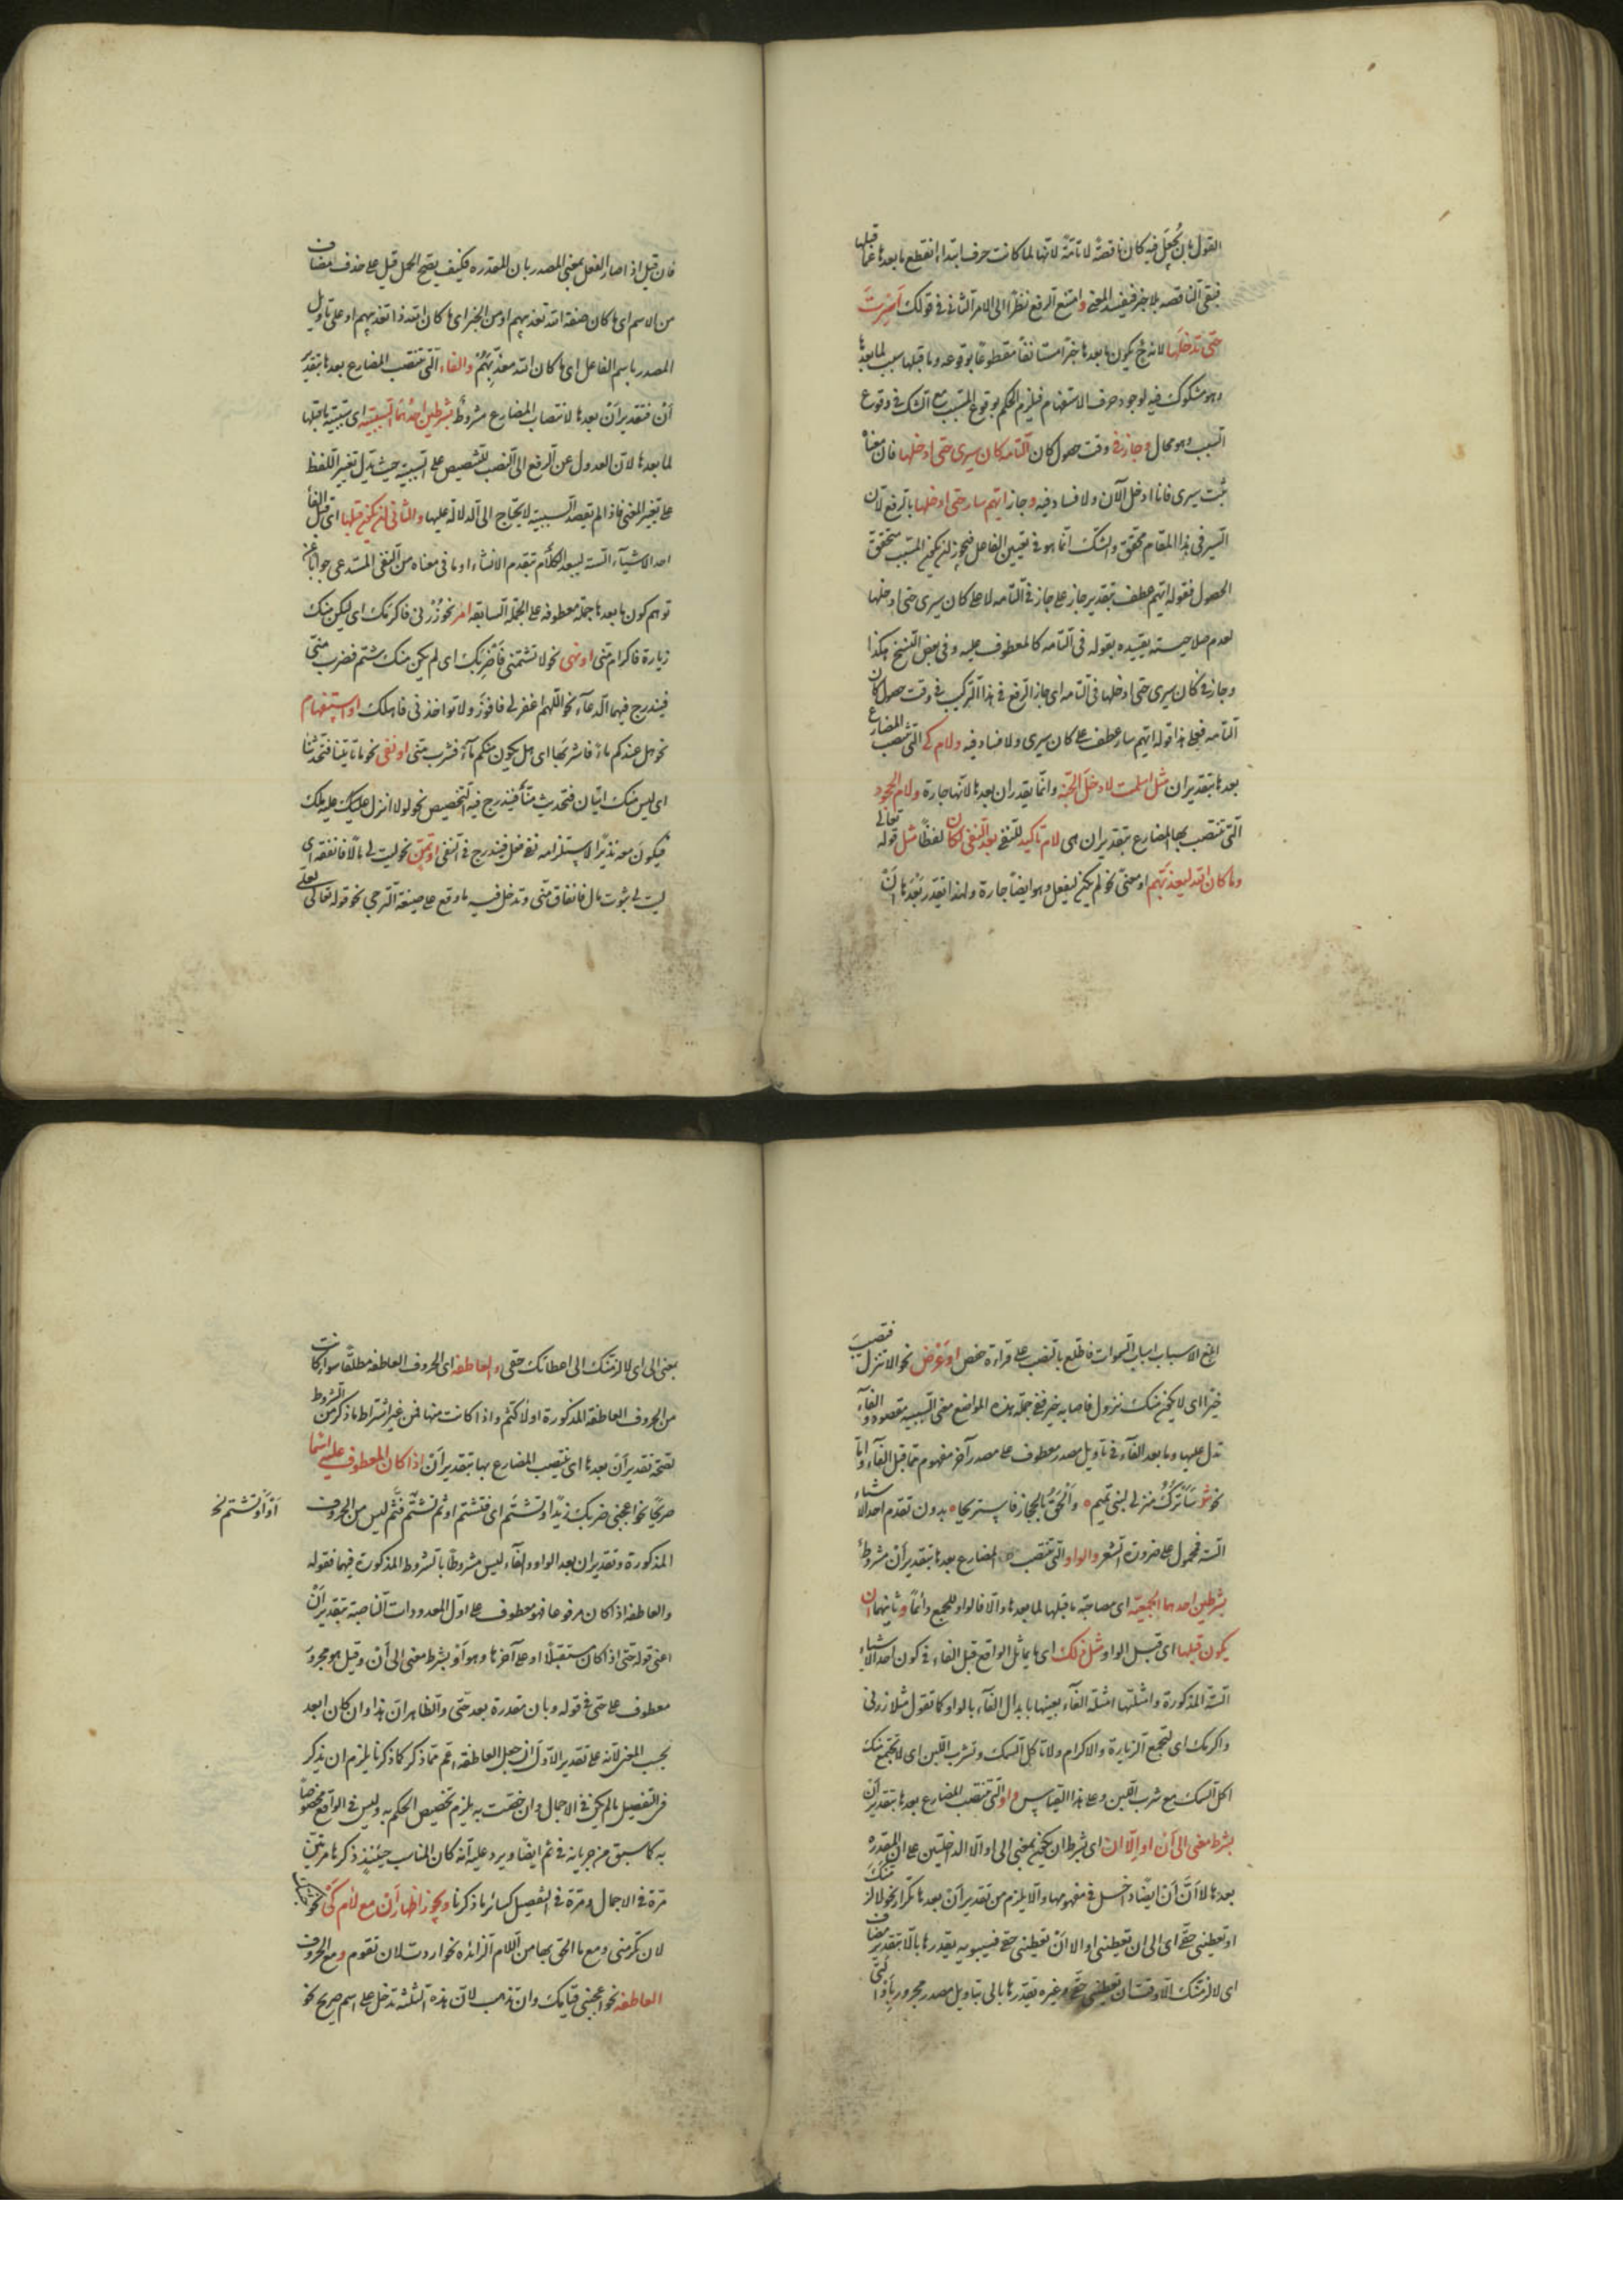 القول بان يجعل فيه كان ناقصة لا تامة لانها لما كانت حرف ابتداء انقطع ما بعدها عما قبلها
فبقى الناقصه بلا خبر فيفسد المعنى وامتنع الرفع نظرا الى الامر الثانى فى قولك اسرت
حتى تدخلها لانه ح يكون ما بعدها خبرا مستانفا مقطوعا بوقوعه وما قبلها سبب لما بعدها
وهو مشكوك فيه لوجود حرف الاستفهام فيلزم الحكم بوقوع المسبب مع الشك فى وقوع
السبب وهو محال وجاز فى وقت حصول كان التامه كان سيرى حتى ادخلها فان معناه
ثبت سيرى فانا ادخل الآن ولا فساد فيه وجاز ايهم سار حتى ادخلها بالرفع لان
السير فى هذا المقام محقق والشك انما هو فى تعيين الفاعل فيجوز ان يكون المسبب متحقق
الحصول فقوله ايهم عطف بتقدير جاز على جاز فى التامه لا على كان سيرى حتى ادخلها
لعدم صلاحيته بقيده بقوله فى التامه كالمعطوف عليه وفى بعض النسخ هكذا
وجاز فى كان سيرى حتى ادخلها فى التامه اى جاز الرفع فى هذا التركيب فى وقت حصول كان
التامه فعلى هذا قوله ايهم سار عطف على كان سيرى ولا فساد فيه ولام كى التى تنتصب المضارع
بعدها بتقدير ان مثل اسلمت لادخل الجنة وانما يقدر ان بعدها لانها جارة ولام الجحود
التى تنتصب بها المضارع بتقدير ان هى لام تاكيد للنفى بعد النفى لكان لفظا مثل قوله تعالى
وما كان الله ليعذبهم او معنى نحو لم يكن ليفعل وهو ايضا جارة ولهذا تقدر بعدها ان
فان قيل اذا صار الفعل بمعنى المصدر بان المقدره فكيف يصح الحمل قيل على حذف مضاف
من الاسم اى ما كان صفة الله تعذيبهم او من الخبر اى ما كان الله ذا تعذيبهم او على تاويل
المصدر باسم الفاعل اى ما كان الله معذبهم والفاء التى تنتصب المضارع بعدها بتقدير
ان فتقدير ان بعدها لانتصاب المضارع مشروط بشرطين احدهما السببية اى سببية ما قبلها
لما بعدها لان العدول عن الرفع الى النصب للتنصيص على السببية حيث يدل تغير اللفظ
على تغير المعنى فاذا لم يقصد السببيه لا يحتاج الى الدلالة عليها والثانى ان يكون قبلها اى قبل الفاء
احد الاشياء الستة ليبعد الكلام بتقدم الانشاء او ما فى معناه من النفى المستدعى جوابا عن
توهم كون ما بعدها جملة معطوفه على الجملة السابقه امر نحو زرنى فاكرمك اى ليكن منك
زيارة فاكرام منى او نهى نحو لا تشتمنى فاضربك اى لم يكن منك شتم فضرب منى
فيندرج فيهما الدعاء نحو اللهم اغفر لى فافوز ولا تواخذنى فاهلك او استفهام
نحو هل عندكم ماء فاشربها اى هل يكون منكم ماء فشرب منى او نفى نحو ما تاتينا فتحدثنا
اى ليس منك اتيان فتحديث منا فيندرج فيه التحضيض نحو لولا انزل عليك عليه ملك
فيكون معه نذيرا لاستلزامه نفى فعل فيندرج فى النفى او تمن نحو ليت لى مالا فانفقه اى
ليت لى ثبوت مال فانفاق منى وتدخل فيه ما وقع على صيغة الترجى نحو قوله تعالى لعلى
ابلغ الاسباب اسباب السموات فاطلع بالنصب على قراءة حفص او عرض نحو الا تنزل فتصيب
خيرا اى لا يكون منك نزول فاصابة خير ففى جملة هذه المواضع معنى السببيه مقصود والفاء
تدل عليها وما بعد الفاء فى تاويل مصدر معطوف على مصدر آخر مفهوم مما قبل الفاء واما
نحو شعر ساترك منزلى لبنى تميم ه والحق بالحجاز فاستريحا ه بدون تقدم احد الاشياء
الستة فمحمول على ضرورة الشعر والواو التى تنتصب المضارع بعدها بتقدير ان مشروط
بشرطين احدهما الجمعيه اى مصاحبة ما قبلها لما بعدها والا فالواو للجمع دائما وثانيهما ان
يكون قبلها اى قبل الواو مثل ذلك اى ما يماثل الواقع قبل الفاء فى كون احد الاشياء
الستة المذكورة وامثلتها امثلة الفاء بعينها بابدال الفاء بالواو كما تقول مثلا زرنى
واكرمك اى لتجتمع الزيارة والاكرام ولا تاكل السمك وتشرب اللبن اى لا يجتمع منك
اكل السمك مع شرب اللبن وعلى هذا القياس واو التى تنتصب المضارع بعدها بتقدير ان
بشرط معنى الى ان او الا ان اى بشرط ان يكون بمعنى الى او الا الداخلتين على ان المقدره
بعدها لا ان ان ايضا داخل فى مفهومها والا يلزم من تقدير ان بعدها تكرار نحو لالزمنك
او تعطينى حقى اى الى ان تعطينى او الا ان تعطينى حقى فسيبويه يقدرها بالا بتقدير مضاف
اى لالزمنك الا وقت ان تعطينى حقى وغيره يقدرها بالى بتاويل مصدر مجرور باو التى
بمعنى الى اى لالزمنك الى اعطائك حقى والعاطفه اى الحروف العاطفه مطلقا سواء كانت
من الحروف العاطفة المذكورة اولا كثم واذا كانت منها فمن غير اشتراط ما ذكر من الشروط
لصحة تقدير ان بعدها اى ينتصب المضارع بها بتقدير ان اذا كان المعطوف عليه اسما
صريحا نحو اعجبنى ضربك زيدا وتشتم اى فتشتم او ثم تشتم فثم ليس من الحروف
المذكورة وتقدير ان بعد الواو والفاء ليس مشروطا بالشروط المذكورت فيهما فقوله
والعاطفة اذا كان مرفوعا فهو معطوف على اول المعدودات الناصبة بتقدير ان
اعنى قوله حتى اذا كان مستقبلا او على آخرها وهو او بشرط معنى الى ان وقيل هو مجرور
معطوف على حتى فى قوله وبان مقدرة بعد حتى والظاهر ان هذا وان كان ابعد
بحسب المعنى لانه على تقدير الاول ان جعل العاطفة اعم مما ذكر كما ذكرنا يلزم ان يذكر
فى التفصيل ما لم يكن فى الاجمال وان خصت به يلزم تخصيص الحكم به وليس فى الواقع مخصوصا
به كما سبق من جريانه فى ثم ايضا ويرد عليه انه كان المناسب حينئذ ذكرها مرتين
مرة فى الاجمال ومرة فى التفصيل كسائر ما ذكرنا ويجوز اظهار ان مع لام كى نحو
لان تكرمنى ومع ما الحق بها من اللام الزائده نحو اردت لان تقوم ومع الحروف
العاطفه نحو اعجبنى قيامك وان تذهب لان هذه الثلثة تدخل على اسم صريح نحو